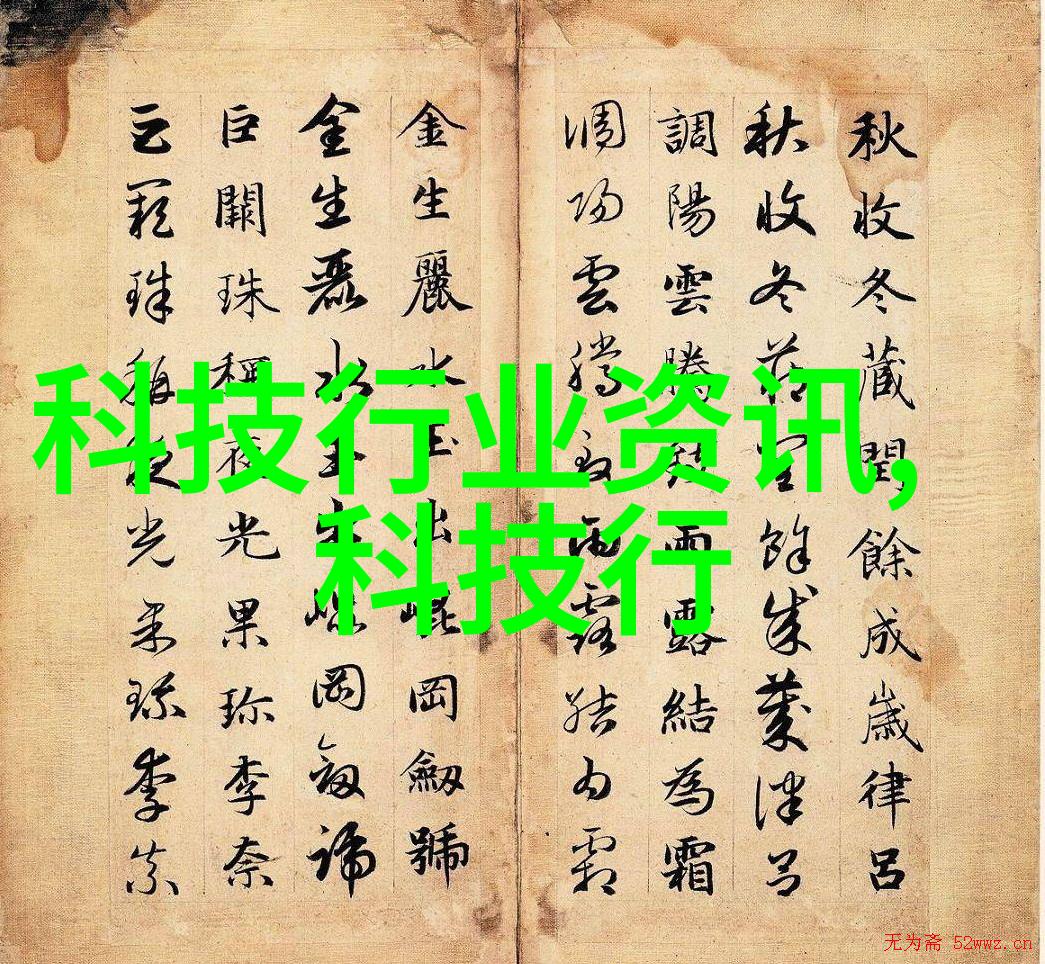 秋收冬藏閏餘成歲律呂
秋收冬藏閏餘成歲律呂
調陽雲騰致雨露結為霜
調陽雲騰致雨露結為霜
金生麗水玉出崐岡劒號
金生麗水玉出崐岡劒號
巨闕珠稱夜光果珍李奈
巨闕珠稱夜光果珍李奈
科技行业资讯,
科技行
无为斋 52wwz.cn